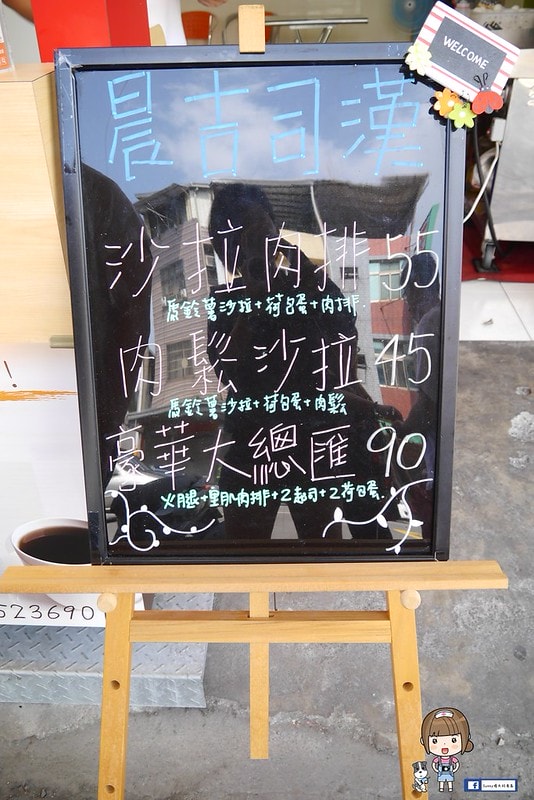 WELCOME
晨吉司漢
沙拉肉排55
馬鈴薯沙拉+荷包蛋+肉排.
肉鬆沙拉45
馬鈴薯沙拉+荷包蛋+肉鬆
豪華大總匯90
火腿+里肌肉排+2起司+2荷包蛋.
!
523690